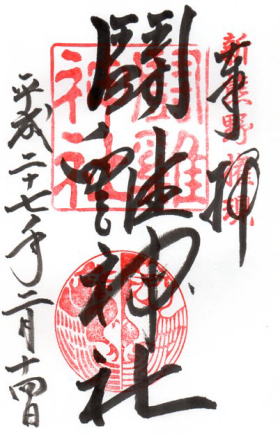 奉拝
新熊野権現
闘雞神社
闘雞神社
平成二十七年二月十四日